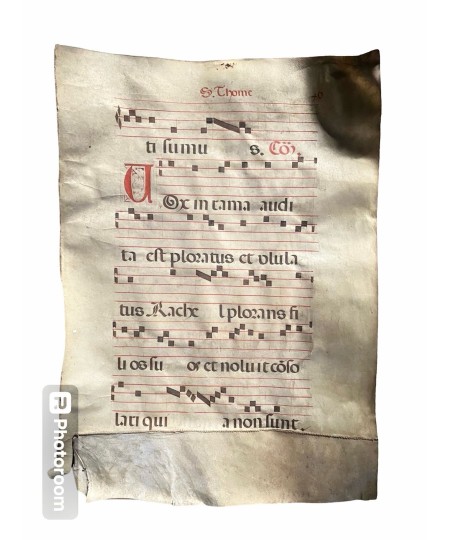 S. Thome
ti sumu s. Cō.
Vox in rama audi
ta est ploratus et vlula
tus Rache l plorans fi
lios su os et noluit cōso
lari qui a non sunt.
Photoroom